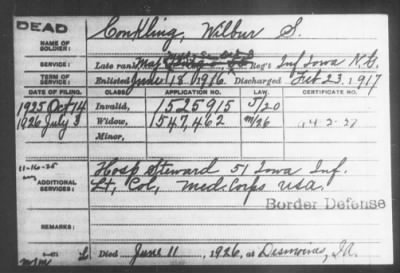 DEAD
NAME OF SOLDIER: Conkling, Wilbur S.
SERVICE: Late rank, Maj Reg't Inf Iowa N.G.
TERM OF SERVICE: Enlisted June 18 1916 Discharged Feb 23, 1917
DATE OF FILING. CLASS. APPLICATION NO. LAW. CERTIFICATE NO.
1925 Oct 14 Invalid, 1525915 5/20
1926 July 3 Widow, 1547,462 5/26
Minor,
11-16-25
ADDITIONAL SERVICES: Hosp Steward 51 Iowa Inf.
Lt. Col, Med. Corps USA.
Border Defense
REMARKS:
Died June 11, 1926, at Desmoines, IA.